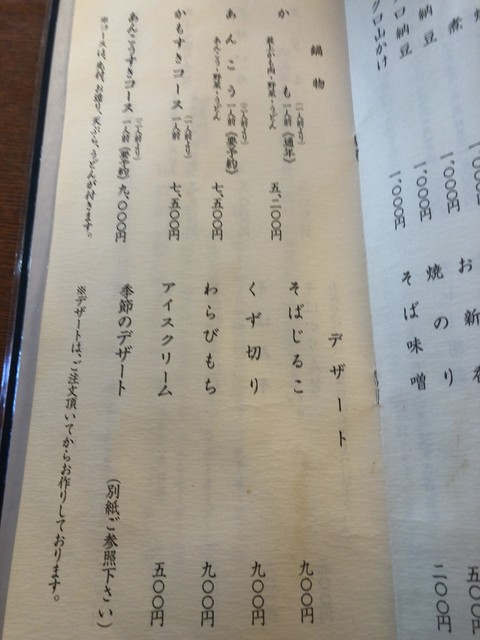 煮
一、〇〇〇円
納豆
一、〇〇〇円
ロ納豆
一、〇〇〇円
グロ山かけ
お新
五〇〇
焼のり
二〇〇円
そば味噌
鍋物
かも 一人前(二人前より)《通年》 五、二〇〇円
肉・野菜・うどん
あんこう 一人前(二人前より)《要予約》 七、五〇〇円
あんこう・野菜・うどん
かもすきコース 一人前(二人前より) 七、五〇〇円
あんこうすきコース 一人前(二人前より)《要予約》 九、〇〇〇円
※コースは、先付、お造り、天ぷら、うどんが付きます。
デザート
そばじるこ 九〇〇円
くず切り 九〇〇円
わらびもち 九〇〇円
アイスクリーム 五〇〇円
季節のデザート (別紙ご参照下さい)
※デザートは、ご注文頂いてからお作りしております。